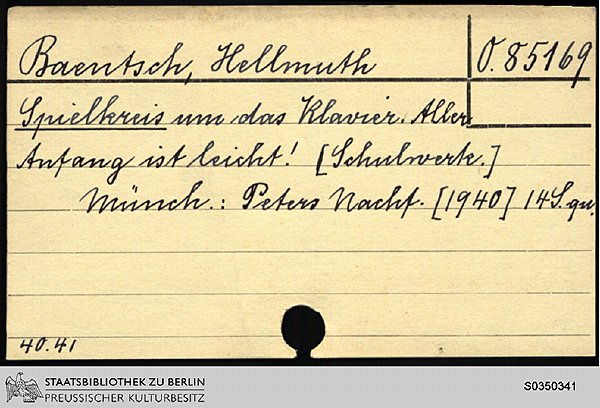 Baentsch, Hellmuth
O. 85169
Spielkreis um das Klavier. Aller
Anfang ist leicht! [Schulwerk.]
Münch.: Peters Nachf. [1940] 14 S. qu.
40.41
STAATSBIBLIOTHEK ZU BERLIN
PREUSSISCHER KULTURBESITZ
S0350341